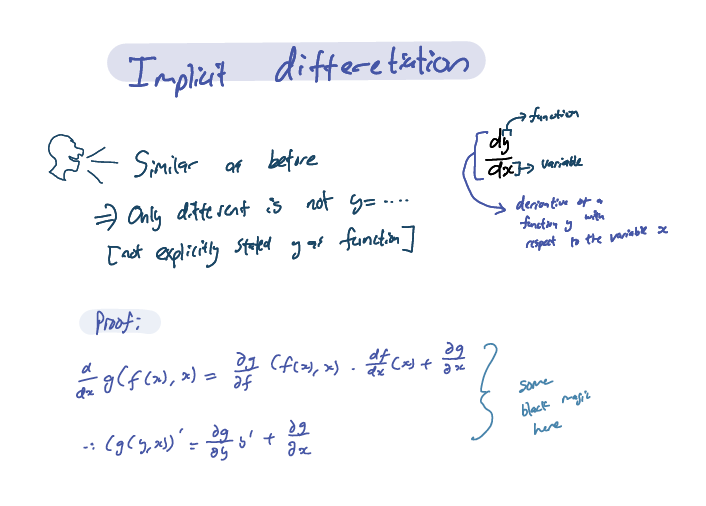 Implicit differetiation
Similar as before
⇒ Only different is not y= ....
[not explicitly stated y as function]
dy → function
dx → variable
derivative of a
function y with
respect to the variable x
Proof:
d/dx g(f(x), x) = ∂g/∂f (f(x), x) · df/dx (x) + ∂g/∂x
∴ (g(y,x))' = ∂g/∂y y' + ∂g/∂x
some
black magic
here